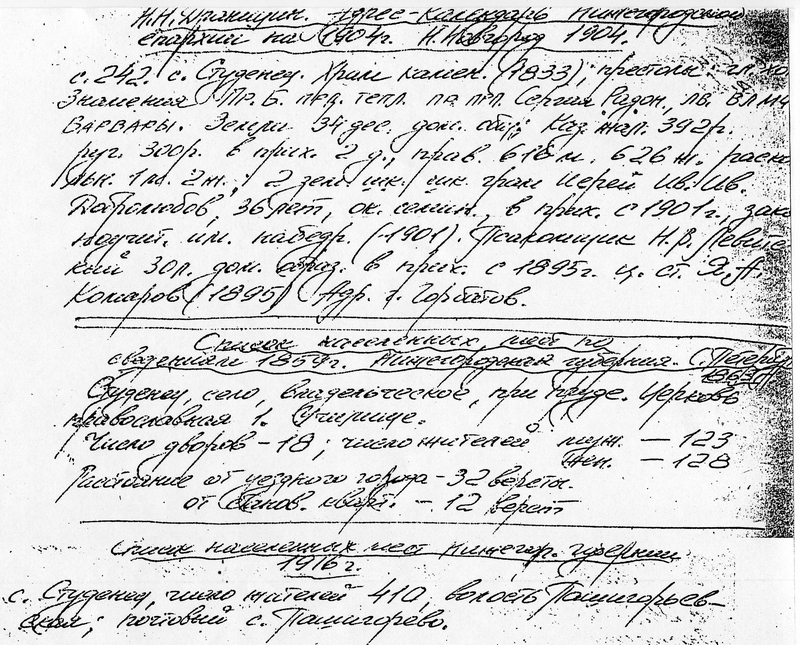 Н.Н. Драницын. Адрес-календарь Нижегородской
епархии на 1904г. Н.Новгород 1904.
с. 242. с. Студенец. Храм камен. (1833); престолы
Знамения Пр. Б. прд. тепл. пр. прп. Сергия Радон., лв. вл мч
Варвары. Земли 34 дес. дом. общ.; Каз. жал. 392р.
руг. 300р. в прих. 2 д., прав. 618 м. 626 ж. раско
льн. 1 м. 2 ж.; 2 шк. грам Иерей Ив. Ив.
Добролюбов, 36 лет, ок. семин., в прих. с 1901г., зако
ноучит. им. набедр. (-1901). Псаломщик Н.В. Левит
кий 30л. дом. образ. в прих. с 1895г. ц. ст. Я.А.
Комаров (1895) Адр. г. Горбатов.
Список населенных мест по
сведениям 1859г. Нижегородская губерния. С.Петербу
1863
Студенец, село, владельческое, при пруде. Церковь
православная 1. Училище.
Число дворов - 18; число жителей муж. — 123
жен. — 128
Растояние от уездного города - 32 версты.
от станов. кварт. — 12 верст
Список населенных мест Нижегор. губернии
1916г.
с. Студенец, число жителей 410, волость Пашигорьев-
ская; почтовый с. Пашигорево.